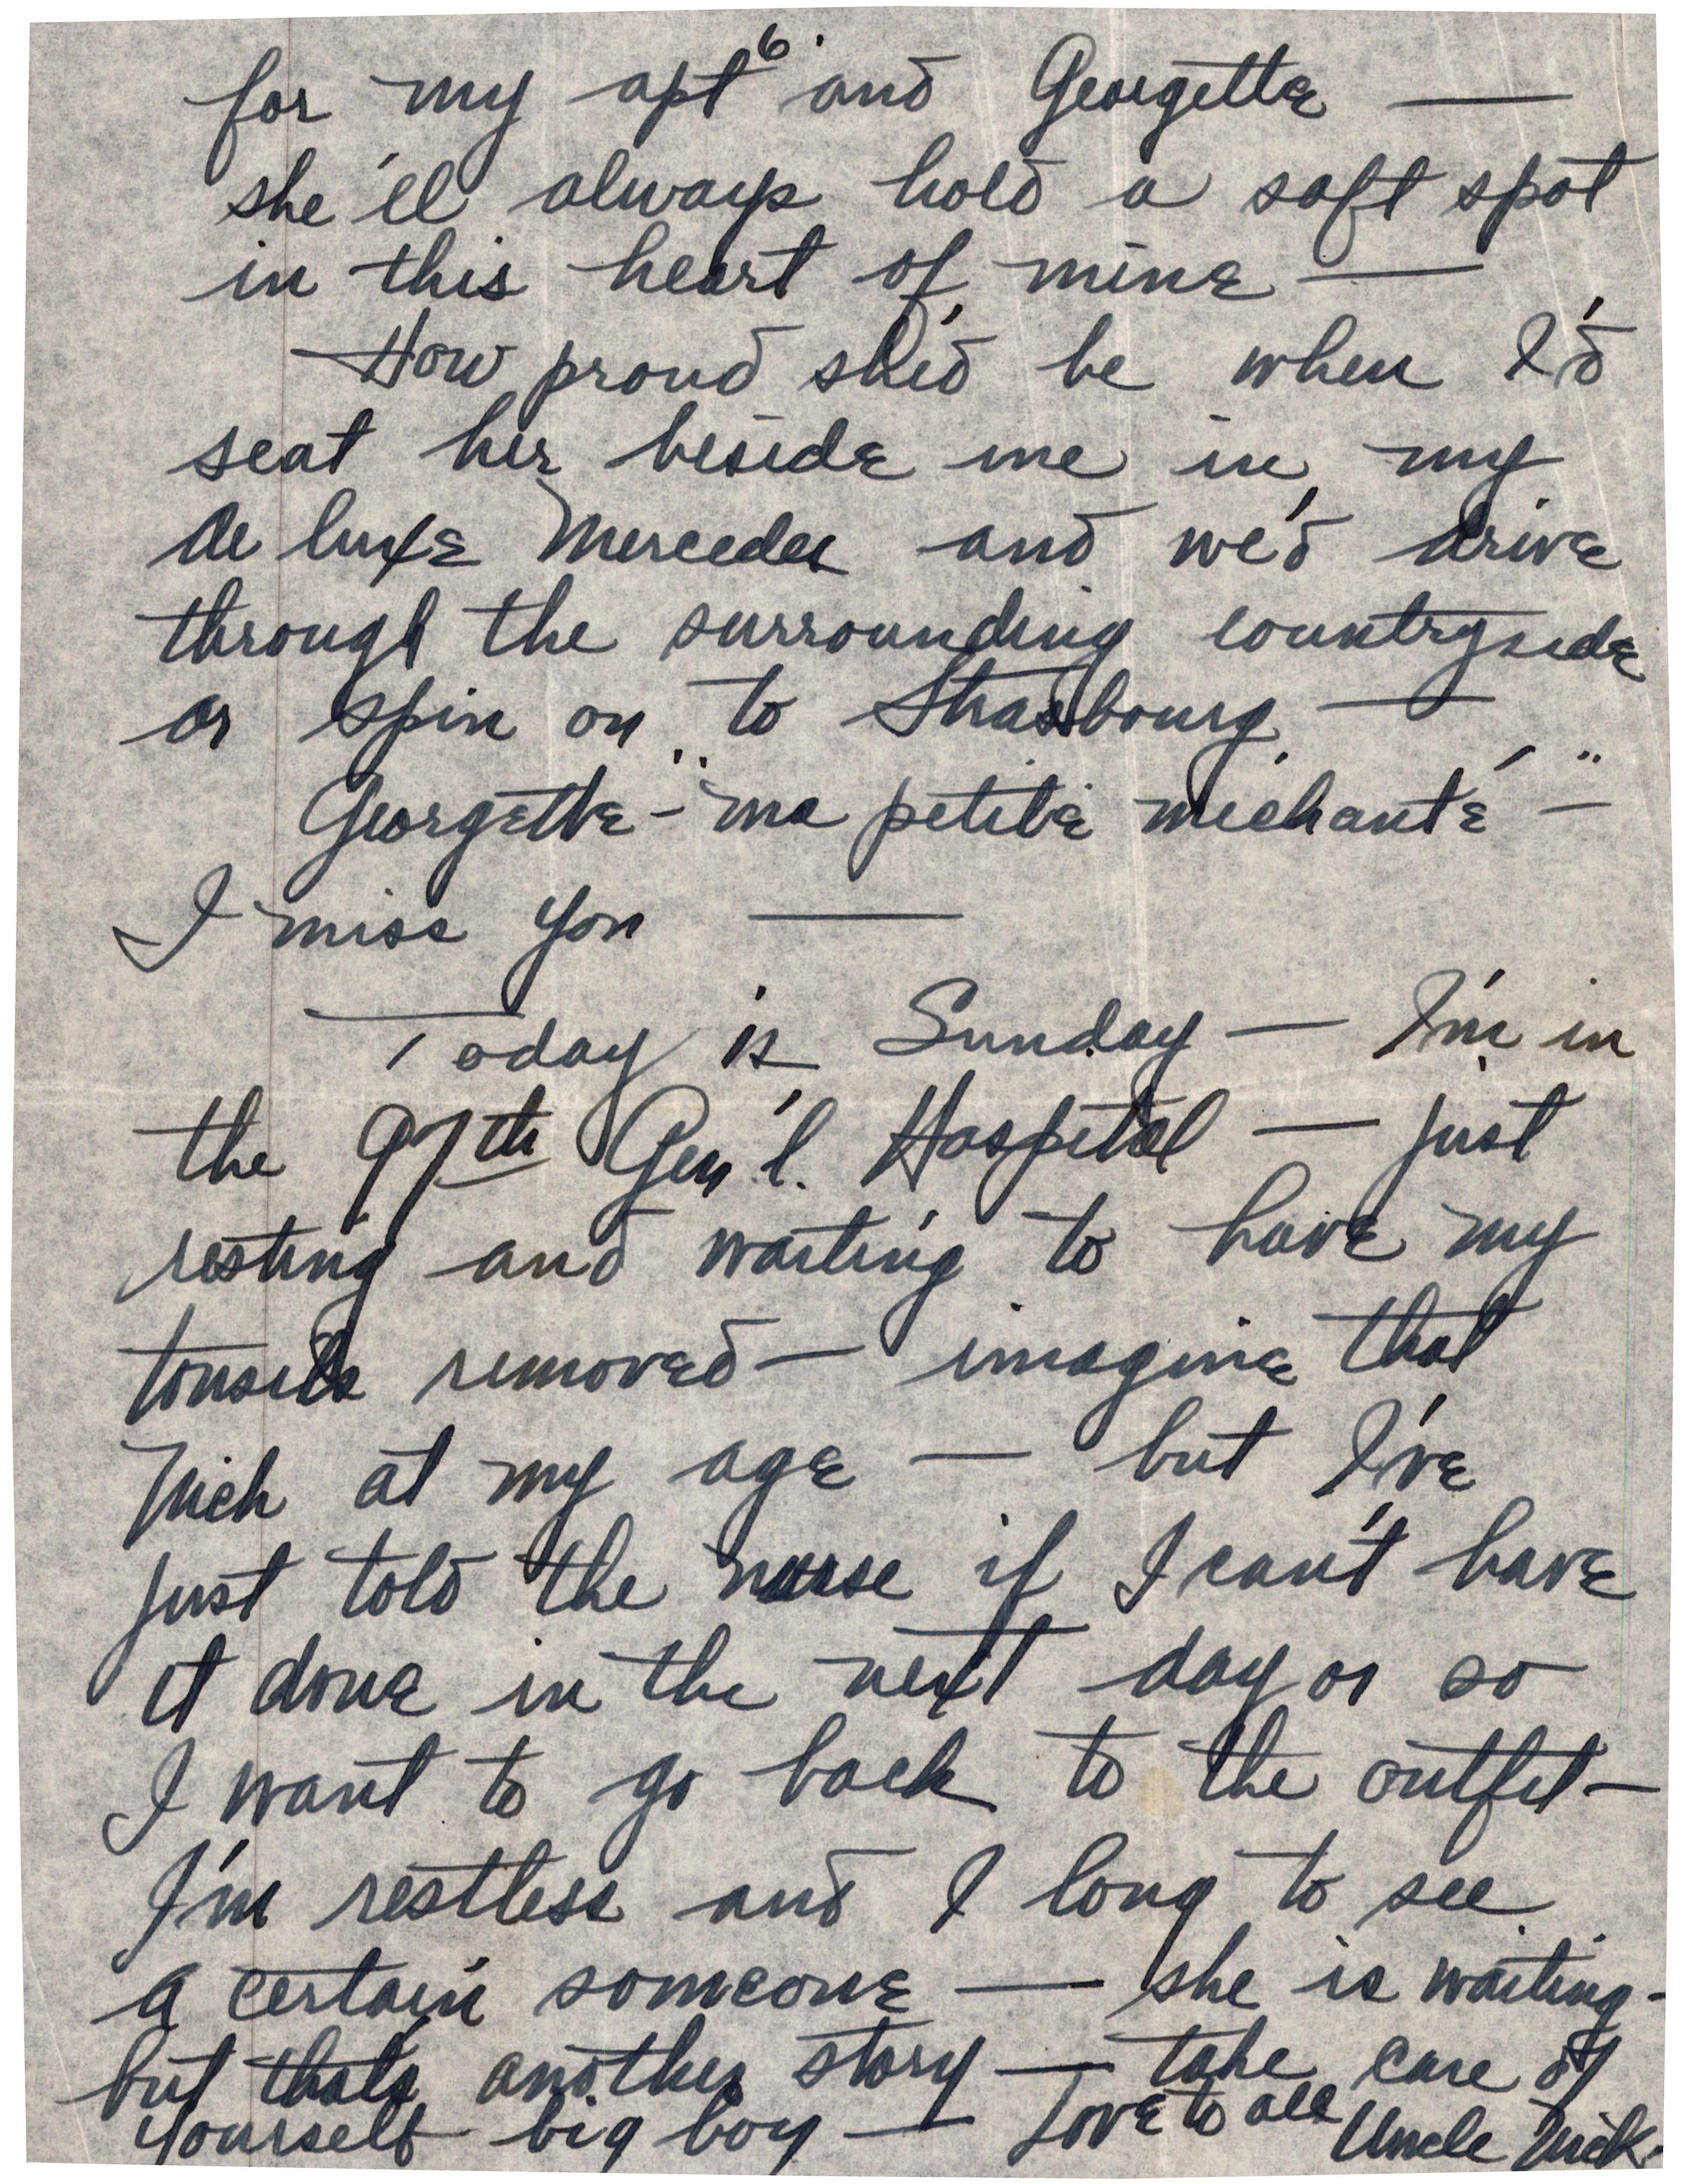 6.
for my apt and Georgette —
she'll always hold a soft spot
in this heart of mine —
How proud she'd be when I'd
seat her beside me in my
de luxe Mercedes and we'd drive
through the surrounding countryside
or spin on to Strasbourg —
Georgette - "ma petite méchante" —
I miss you —
Today is Sunday — I'm in
the 97th Gen'l. Hospital — just
resting and waiting to have my
tonsils removed — imagine that
Nick at my age — but I've
just told the nurse if I can't have
it done in the next day or so
I want to go back to the outfit —
I'm restless and I long to see
a certain someone — she is waiting -
but that's another story — take care of
yourself big boy — Love to all Uncle Nick.